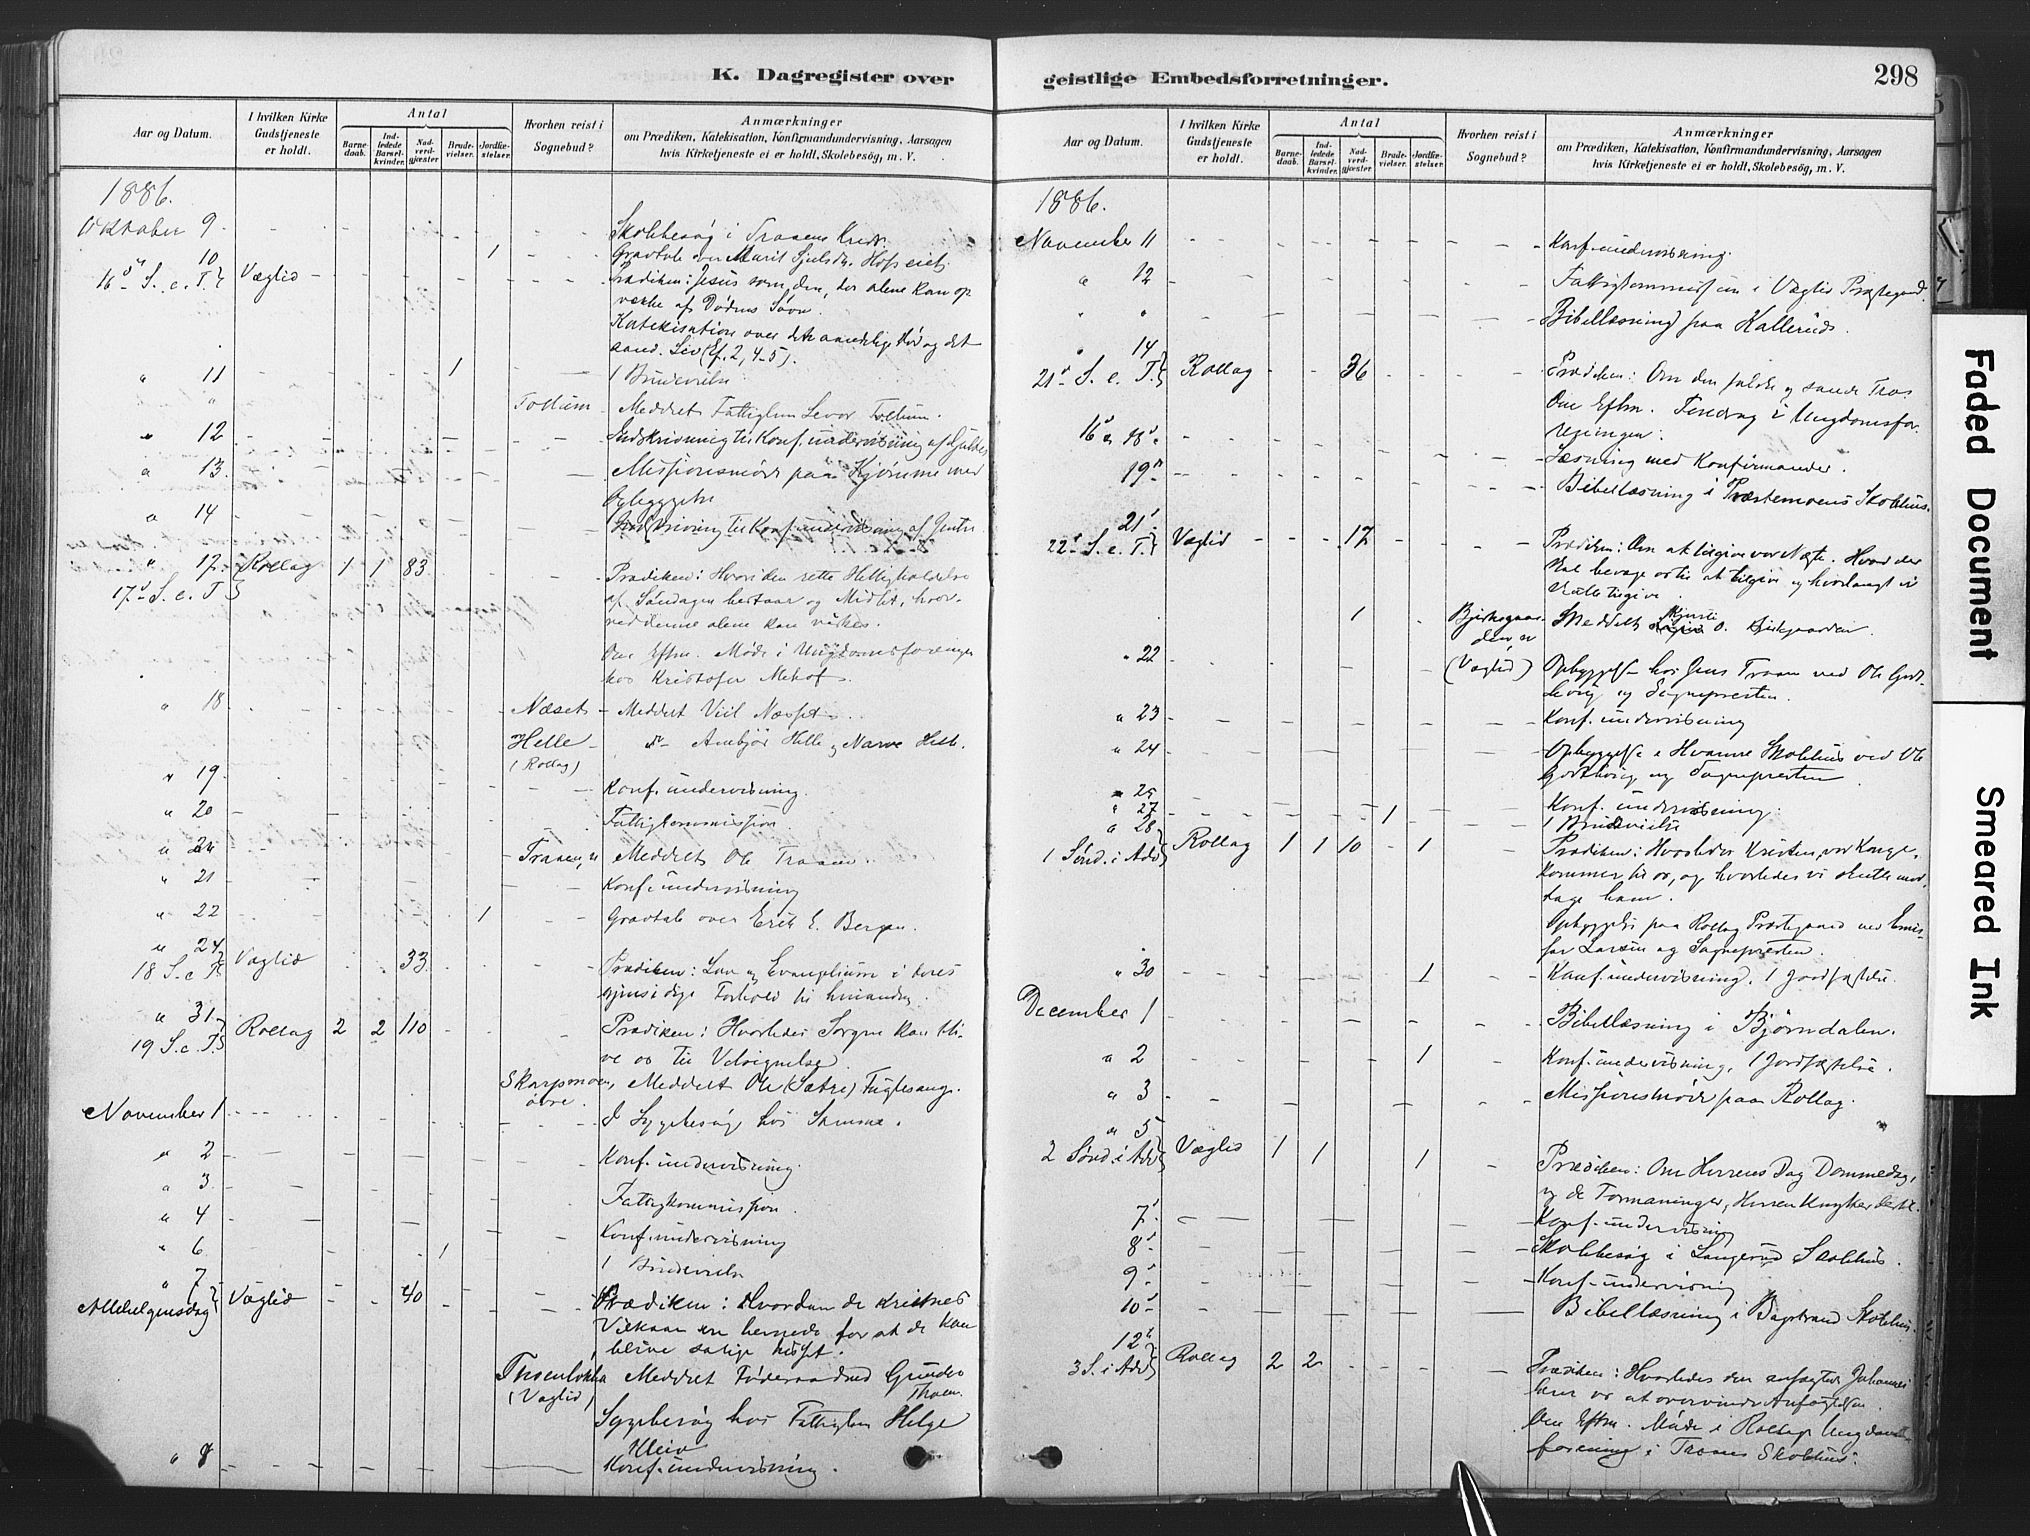 K. Dagregister over
Aar og Datum.
I hvilken Kirke Gudstjeneste er holdt.
Antal
Barnedaab.
Indledede Barselkvinder.
Nadverdgjæster
Brudevielser.
Jordfæstelser.
Hvorhen reist i Sognebud?
Anmærkninger
om Prædiken, Katekisation, Konfirmandundervisning, Aarsagen
hvis Kirketjeneste ei er holdt, Skolebesög, m. V.
1886.
Oktober 9 Skolebesøg i Traaens Kreds
10 1 Gravtale over Marit
16de S. e. T. Væglid Prædiken: Jesus som den, der alene kan op
vække af Dødens Søvn.
Katekisation over den aandelige Død og det
aand. Liv (Ef. 2, 4-5).
" 11 1 1 Brudevielse
" Tollum Meddelt Fattiglem Levor Tollum.
" 12 Indskrivning til Konf.undervisning af Gutter
" 13 Missionsmøde paa Kjømme med
Opbyggelse
" 14 Indskrivning til Konf.undervisning af Jenter
" 17 Rollag 1 1 83
17de S. e. T. Prædiken: Hvori den rette Helligholdelse
af Søndagen bestaar og Midlet, hvor-
ved denne alene kan virkes.
Om Eftm. Møde i Ungdomsforeningen
hos Kristofer
" 18 Næset Meddelt
Helle Helle og Narve Helle.
(Rollag)
" 19 Konf.undervisning.
" 20 Fattigkommission.
" Traaen, n Meddelt Ole Traaen.
" 21 Konf.undervisning
" 22 1 Gravtale over Erik E. Bergan.
" 24 Væglid 33
18 S. e T. Prædiken: Lov og Evangelium i deres
gjensidige Forhold til hinanden.
" 31 Rollag 2 2 110 Prædiken: Hvorledes Sorgen kan bli-
19 S. e. T. ve os til Velsignelse.
Skarpmoen, Meddelt Ole (Sætre) Fuglesang.
øvre.
November 1 I Sygebesøg hos Samme.
" 2 Konf.undervisning.
" 3 Fattigkommission.
" 4 Konf.undervisning
" 6 1 1 Brudevielse
" 7 Væglid 40 Prædiken: Hvordan de Kristnes
Allehelgensdag Vilkaar er hernede for at de kan
blive salige hisset.
Thoenløkka Meddelt Føderaadmd Gunder
(Væglid) Thoen.
Sygebesøg hos Fattiglem Helge
Kleiv
" 8 Konf.undervisning.
geistlige Embedsforretninger.
298
Aar og Datum.
I hvilken Kirke Gudstjeneste er holdt.
Antal
Barnedaab.
Indledede Barselkvinder.
Nadverdgjæster.
Brudevielser.
Jordfæstelser.
Hvorhen reist i Sognebud?
Anmærkninger
om Prædiken, Katekisation, Konfirmandundervisning, Aarsagen
hvis Kirketjeneste ei er holdt, Skolebesög, m. V.
1886.
November 11 Konf.undervisning.
" 12 Fattigkommission i Væglid Præstegaard.
" " Bibellæsning paa Kallerud.
" 14 Rollag 36
21de S. e. T. Prædiken: Om den falske og sande Tro
Om Eftm. Foredrag i Ungdomsfor-
eningen.
16de og 18de Læsning med Konfirmander.
19de Bibellæsning i Præstemoens Skolehus.
21de Væglid 17
22de S. e. T. Prædiken: Om at tilgive vor Næste. Hvad der
skal bevæge os til at tilgive og hvorlangt vi
skulle tilgive.
1 Bjerkgaar- Meddelt Kjersti O. Bjerkgaarden.
den, n
(Væglid)
" 22 Opbyggelse hos Jens Traaen ved Ole Godt-
levig og Sognepresten.
" 23 Konf.undervisning
" 24 Opbyggelse i Hvamme Skolehus ved Ole
og Sognepresten
" 25 Konf.undervisning.
" 27 1 1 Brudevielse
" 28 Rollag 1 1 10 1
1 Sønd. i Adv Prædiken: Hvorledes Kristus, vor Konge,
kommer til os, og hvorledes vi skulle mod-
tage ham.
Opbyggelse paa Rollag Præstegaard ved Emis-
sær Larsen og Sognepresten.
" 30 1 Konf.undervisning. 1 Jordfæstelse.
December 1 Bibellæsning i Bjørndalen.
" 2 1 Konf.undervisning. 1 Jordfæstelse.
" 3 Missionsmøde paa Rollag.
" 5 Væglid 1 1 1
2 Sønd. i Adv Prædiken: Om Herrens Dag Dommedag,
og de Formaninger, Herren knytter dertil.
7de Konf.undervisning
8de Skolebesøg i Langerud Skolehus.
9de Konf.undervisning
10de Bibellæsning i Bagstrand Skolehus.
12te Rollag 2 2
3 S. i Adv Prædiken: Hvorledes den anfægtede Johannes
lærer os at overvinde Anfægtelser.
Om Eftm. Møde i Rollags Ungdoms-
forening i Traaen Skolehus.
Faded Document
Smeared Ink